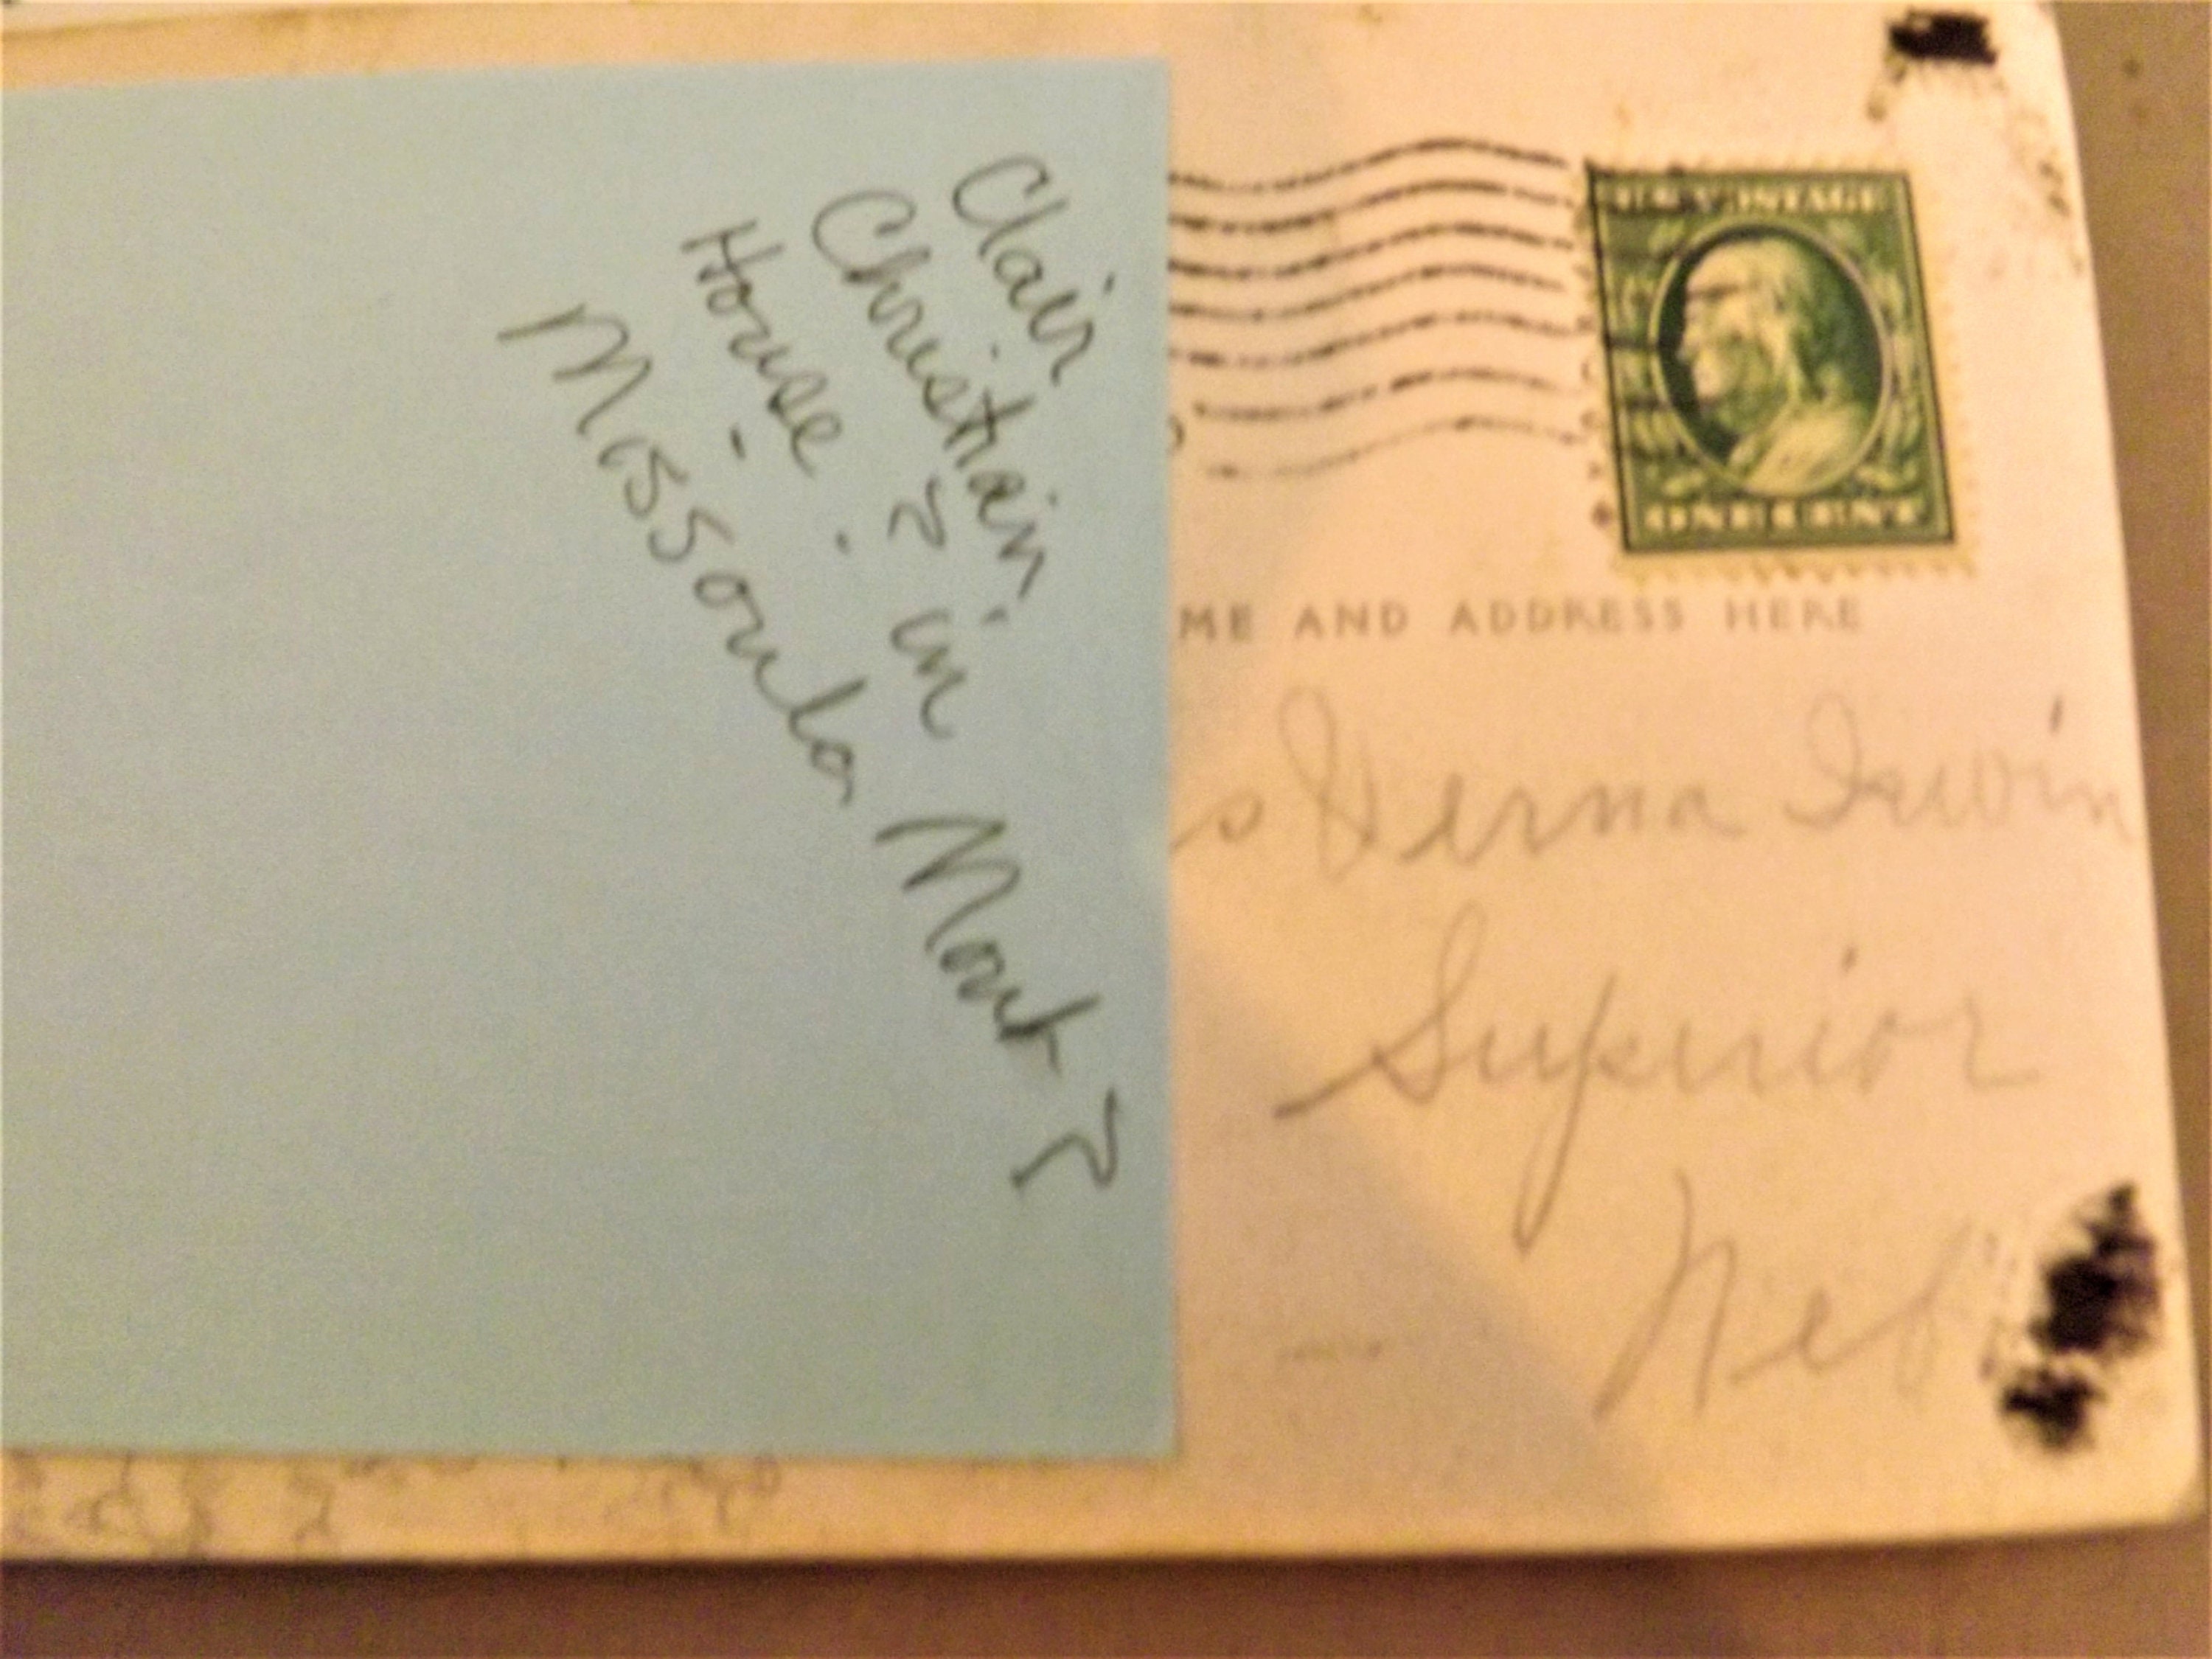 Clair
Christian
House ? in
Missoula Mont ?
U.S. POSTAGE
ONE CENT
ME AND ADDRESS HERE
s Verna Irwin
Superior
Neb